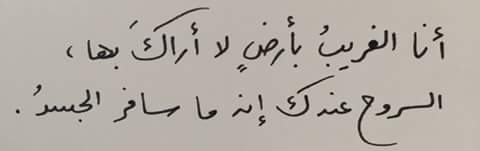 أنا الغريبُ بأرضٍ لا أراكَ بها،
الروح عندك إن ما سافر الجسدُ.